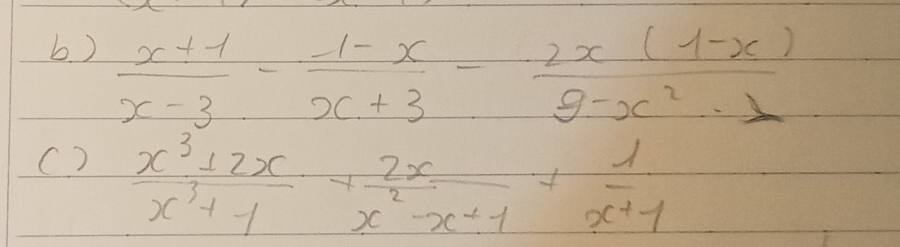 b) (x+1)/(x-3) - (1-x)/(x+3) - (2x(1-x))/(9-x²) .
c) (x³+2x)/(x³+1) + (2x)/(x²-x+1) + 1/(x+1)